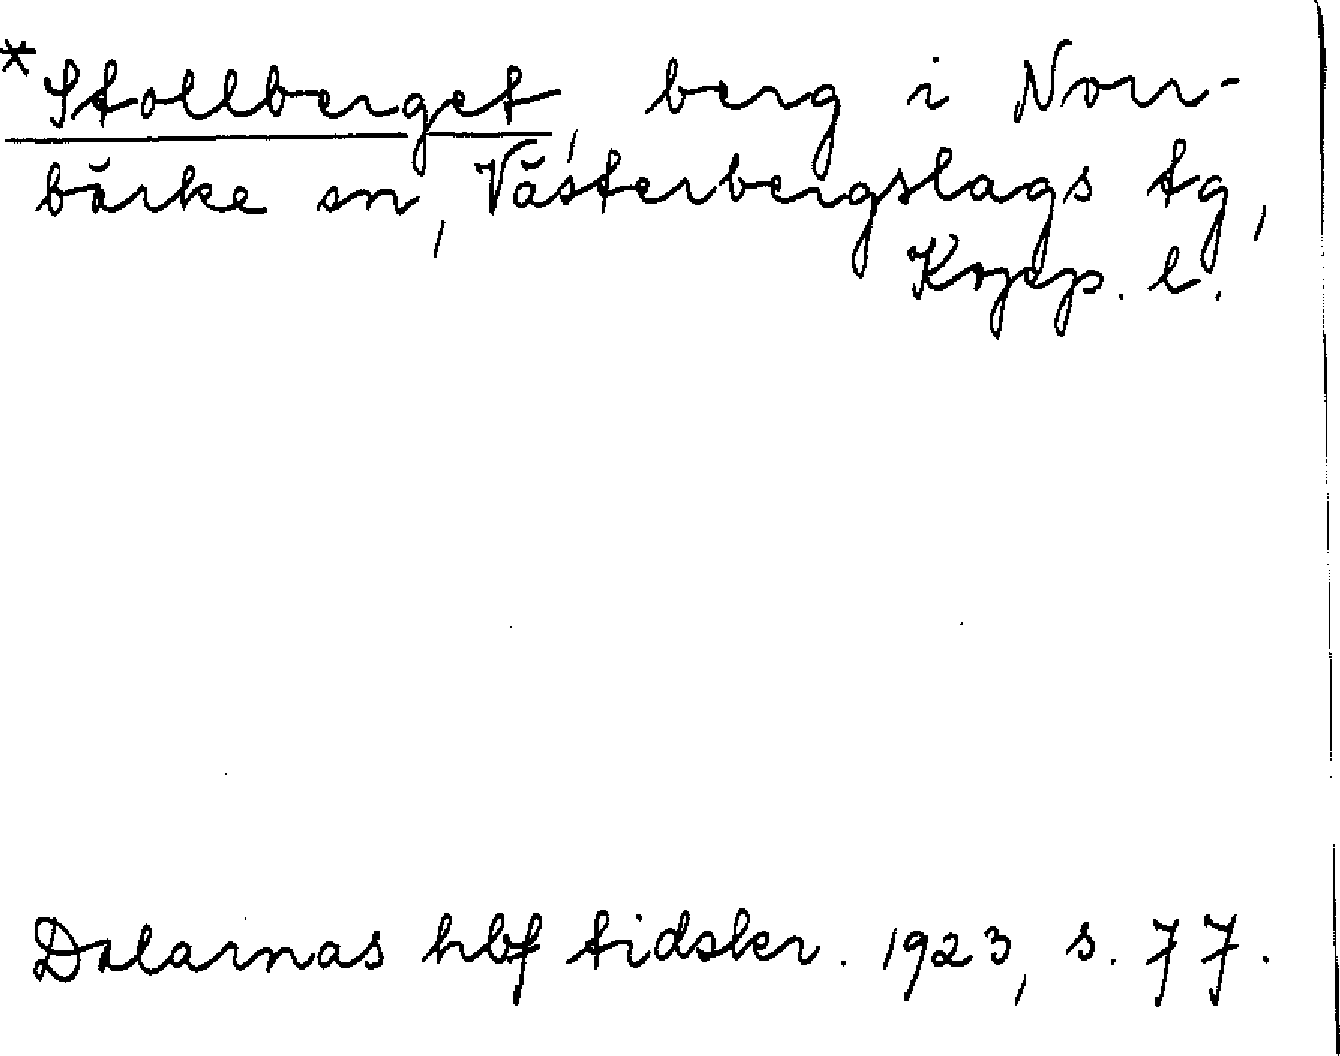 * Stollberget, berg i Norr-
bärke sn, Västerbergslags tg,
Kopp. l.
Dalarnas hbf tidskr. 1923, s. 77.